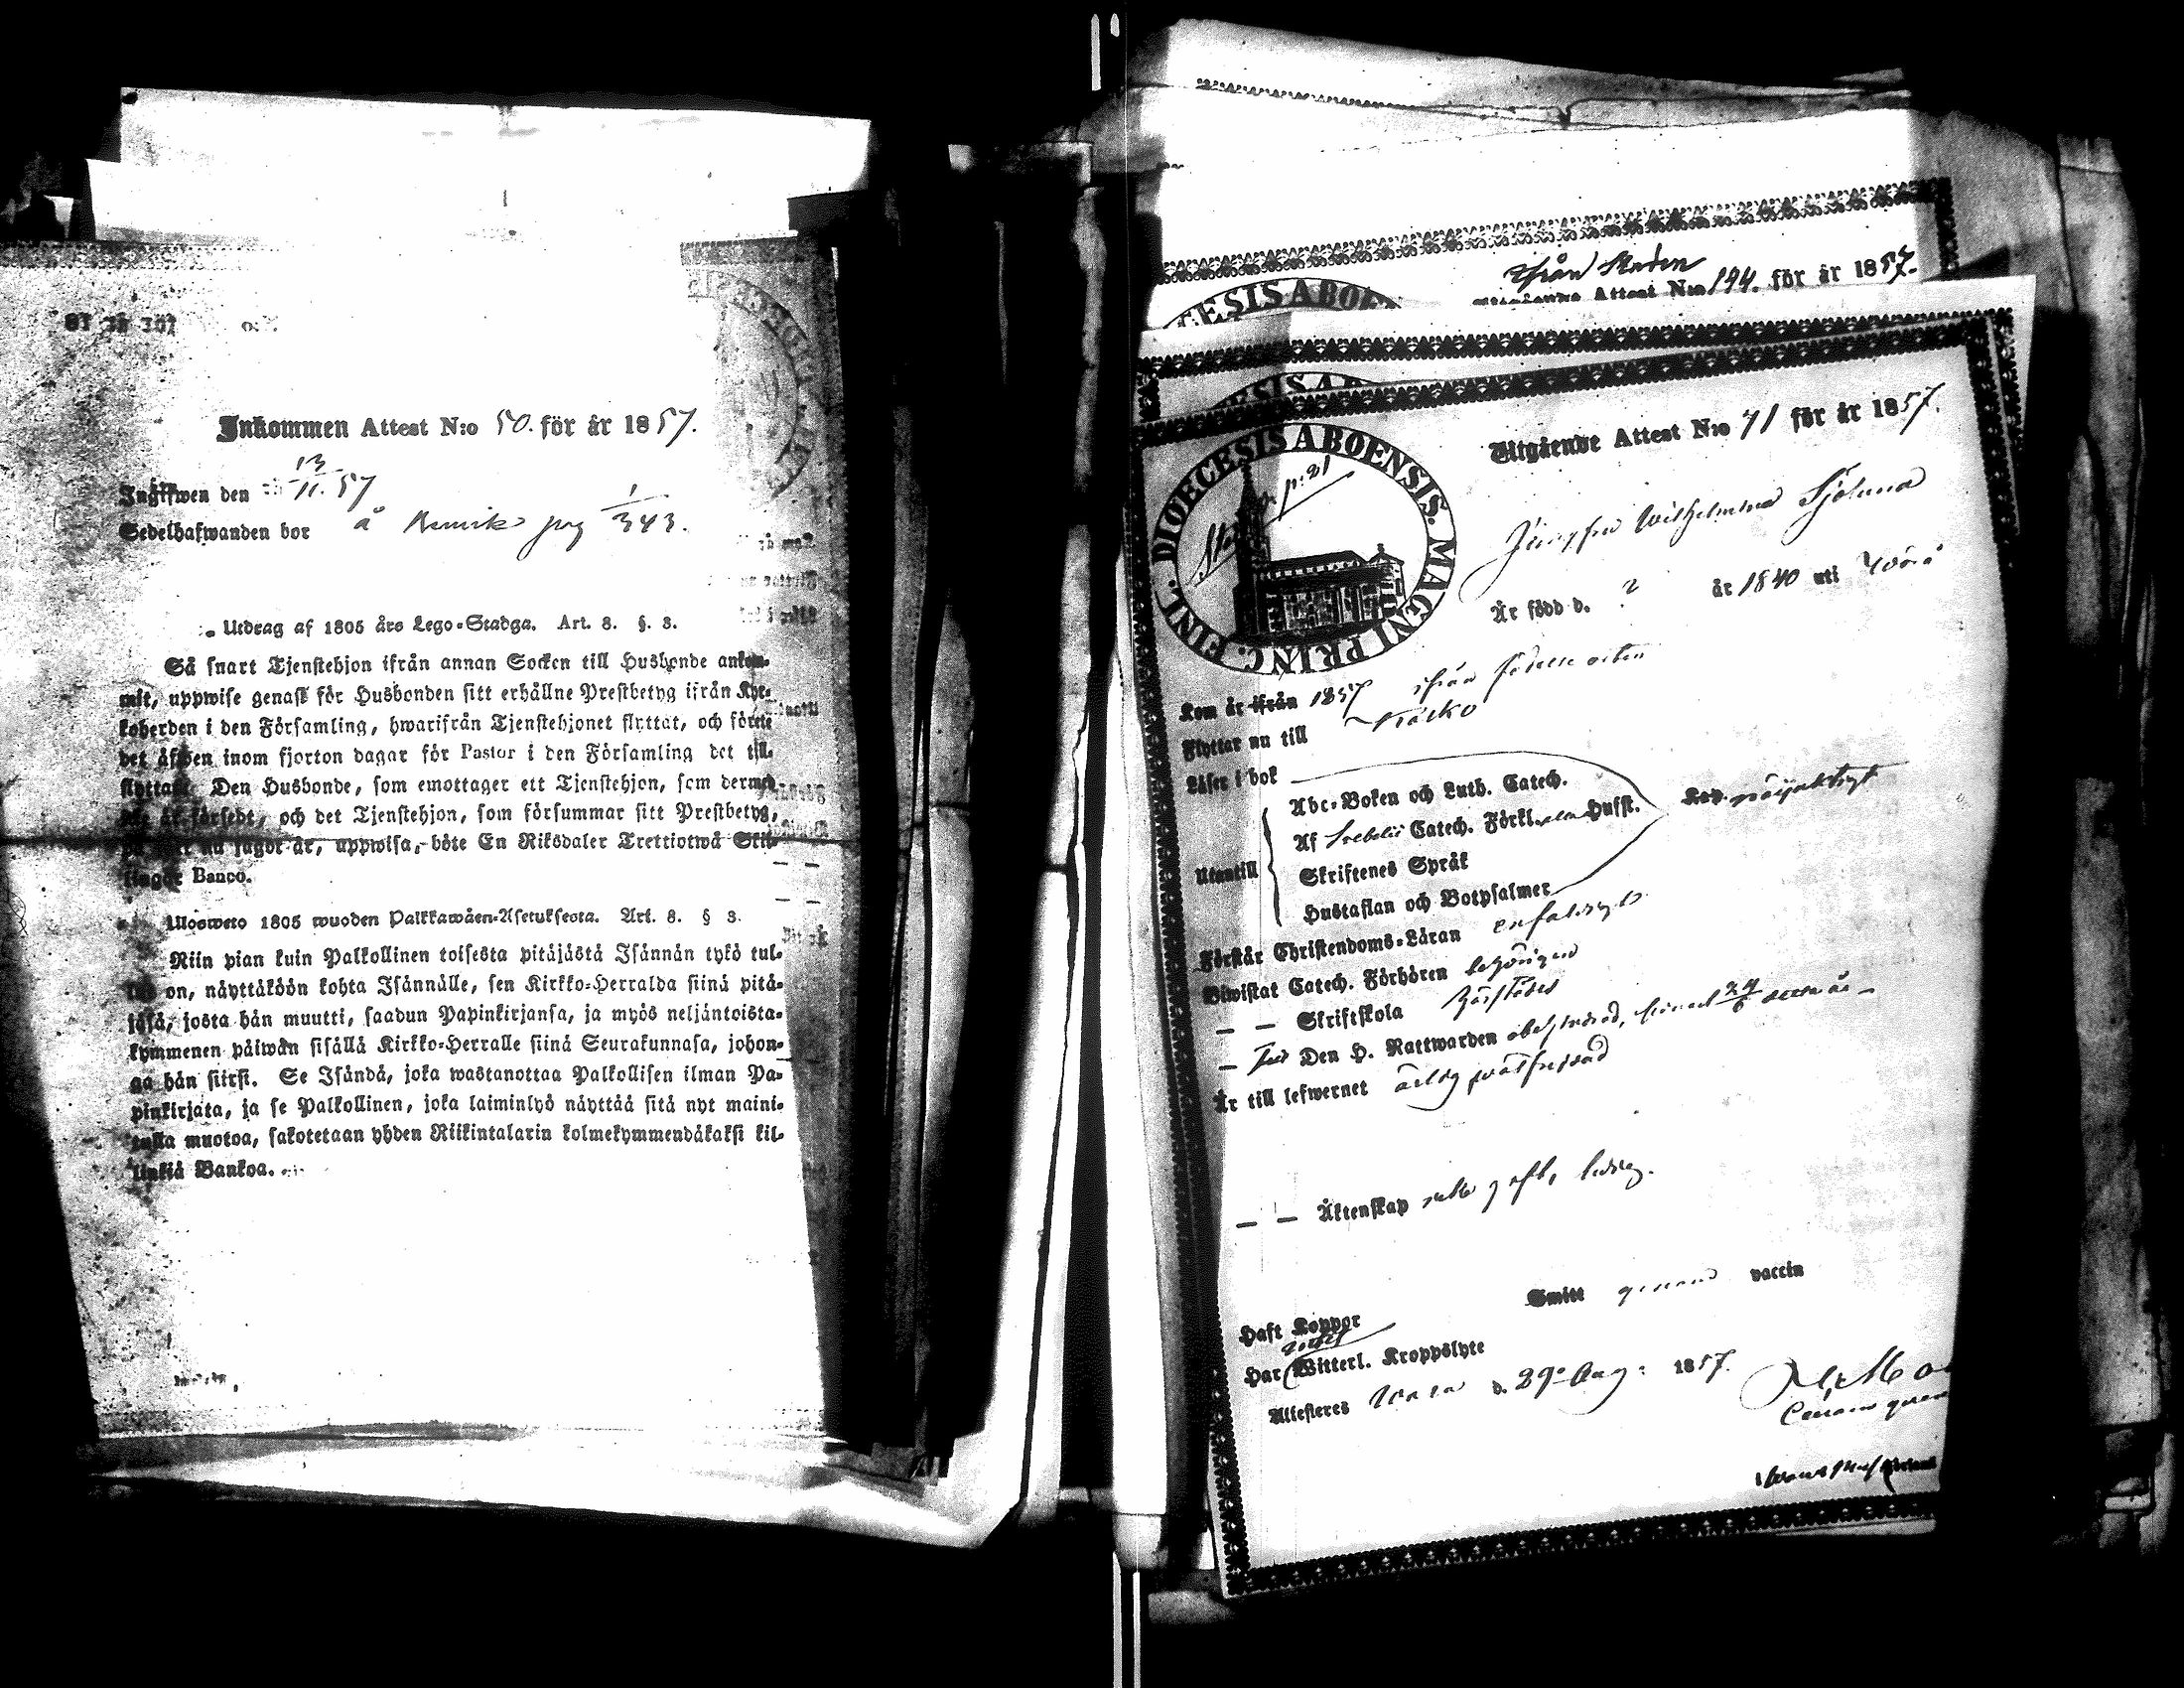 Inkommen Attest N:o 50. för år 1857.
Ingifwen den 13/11. 57
Sedelhafwanden bor å pag 1/343.
Utdrag af 1805 års Lego-Stadga. Art. 8. §. 3.
Så snart Tjenstehjon ifrån annan Socken till Husbonde ankom-
mit, uppwise genast för Husbonden sitt erhållne Prestbetyg ifrån Kyr-
koherden i den Församling, hwarifrån Tjenstehjonet flyttat, och förete
det äfwen inom fjorton dagar för Pastor i den Församling det till-
flyttat. Den Husbonde, som emottager ett Tjenstehjon, som dermed
är försedt, och det Tjenstehjon, som försummar sitt Prestbetyg,
nu sagdt är, uppwisa, böte En Riksdaler Trettiotwå Skil-
lingar Banco.
Ulosweto 1805 wuoden Palkkawäen-Asetuksesta. Art. 8. § 3.
Niin pian kuin Palkollinen toisesta pitäjästä Isännän tykö tul-
lut on, näyttäköön kohta Isännälle, sen Kirkko-Herralda siinä pitä-
jäsä, josta hän muutti, saadun Papinkirjansa, ja myös neljäntoista-
kymmenen päiwän sisällä Kirkko-Herralle siinä Seurakunnasa, johon-
ga hän siirsi. Se Isändä, joka wastanottaa Palkollisen ilman Pa-
pinkirjata, ja se Palkollinen, joka laiminlyö näyttää sitä nyt maini-
tulla muotoa, sakotetaan yhden Riikintalarin kolmekymmendäkaksi kil-
linkiä Bankoa.
ifrån Staden
Utgående Attest N:o 194. för år 1857.
DIOECESIS ABOENSIS. MAGNI PRINC. FINL.
p: 21
Utgående Attest N:o 71 för år 1857.
Jungfru Wilhelmina Sjölund
Är född d. ? år 1840 uti Wörå
Kom år ifrån 1857 ifrån födelse orten
Flyttar nu till
Läser i bok
Abc-Boken och Luth. Catech.
Af Svebelii Catech. Förkl. utan Husst.
Utantill Skriftenes Språk
Hustaflan och Botpsalmer
nöjaktigt
Förstår Christendoms-Läran enfaldigt
Biwistat Catech. Förhören behörigen
— — Skriftskola härstädes
— Den H. Nattwarden obehindrad, sednast 24/6 detta år —
Är till lefwernet ärlig
— — Äktenskap icke gift, ledig.
Haft Koppor Smitt genom vaccin
Har Witterl. Kroppslyte
Attesteras Wasa d. 29 Aug: 1857.